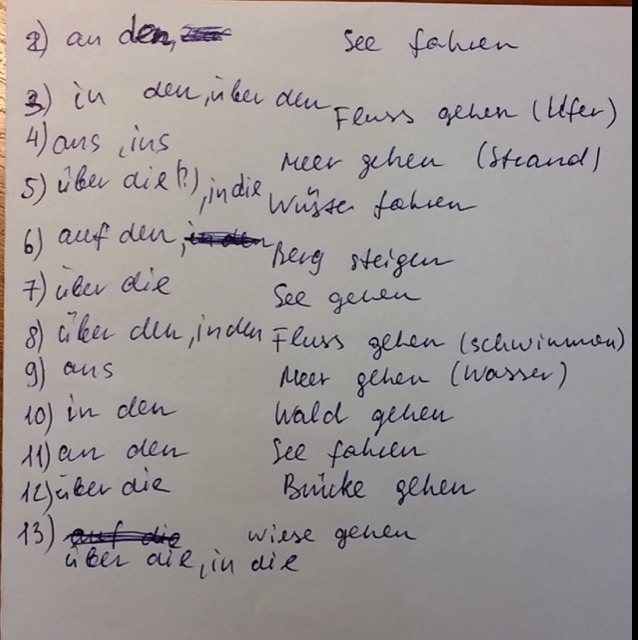 2) an den, See fahren
3) in den, über den Fluss gehen (Ufer)
4) ans, ins Meer gehen (Strand)
5) über die (?), in die Wüste fahren
6) auf den, in den Berg steigen
7) über die See gehen
8) über den, in den Fluss gehen (schwimmen)
9) ans Meer gehen (Wasser)
10) in den Wald gehen
11) an den See fahren
12) über die Brücke gehen
13) auf die wiese gehen
über die, in die